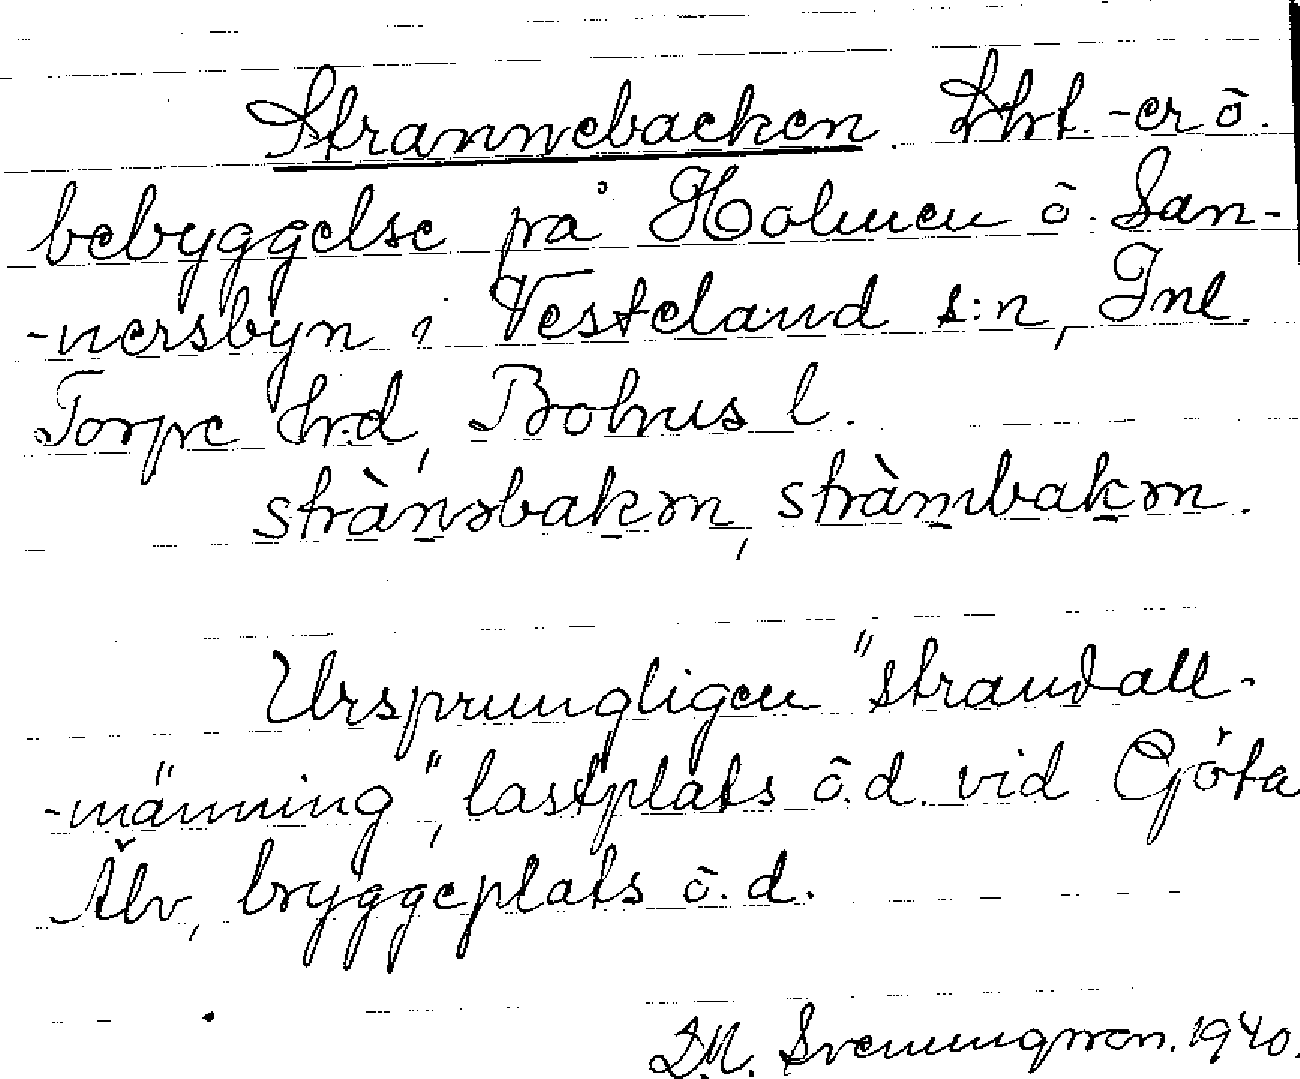 Strannebacken. Lht. -er ö.
bebyggelse på Holmen ö. San-
-nersbyn i Vesteland s:n, Inl.
Torpe hrd, Bohus l.
strànəbakɛn, stràmbakɛn.
Ursprungligen "strandall-
-männing", lastplats ö.d. vid Göta
Älv, bryggeplats ö.d.
D.M. Svenungsson. 1940.